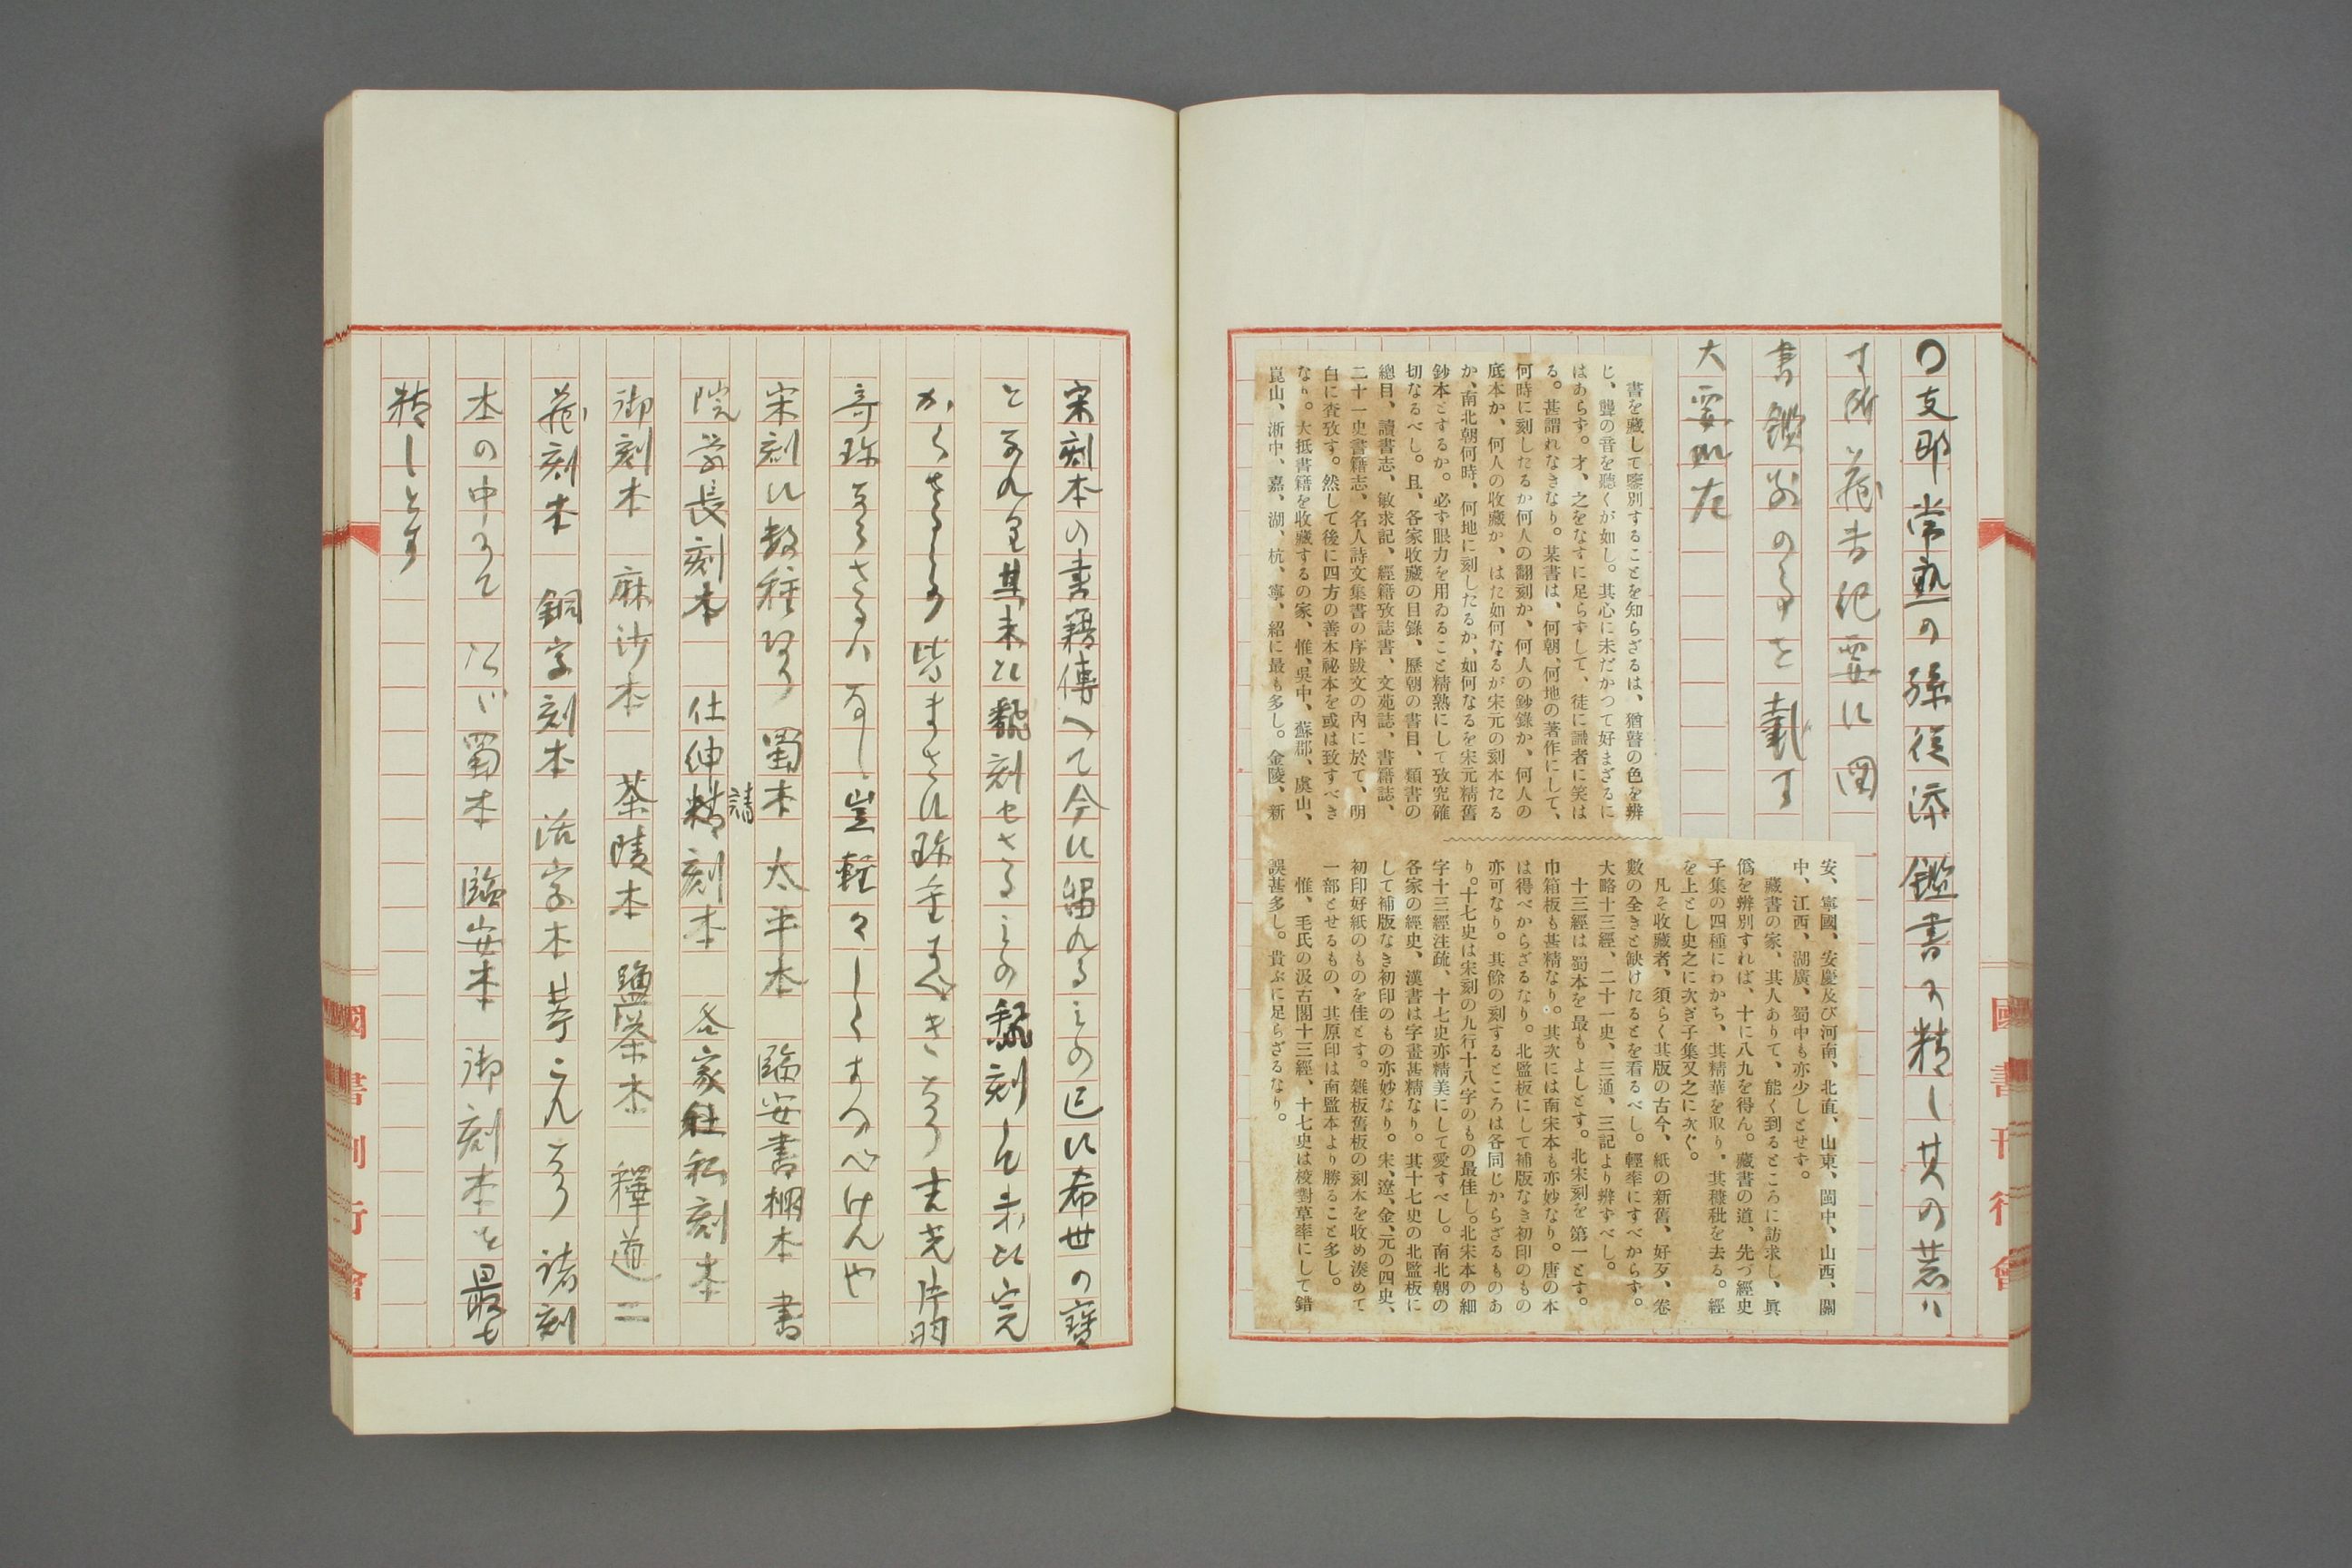 〇支那常熟の孫従添鑑書に精し其の著ハ
す所蔵書紀要に図
書鑑別の事を載す
大要如左
書を藏して鑒別することを知らざるは、猶瞽の色を辨
じ、聾の音を聽くが如し。其心に未だかつて好まざるに
はあらず。才、之をなすに足らずして、徒に識者に笑は
る。甚謂れなきなり。某書は、何朝、何地の著作にして、
何時に刻したるか何人の翻刻か、何人の鈔錄か、何人の
底本か、何人の收藏か、はた如何なるが宋元の刻本たる
か、南北朝何時、何地に刻したるか、如何なるを宋元精舊
鈔本とするか。必ず眼力を用ゐること精熟にして攷究確
切なるべし。且、各家收藏の目錄、歷朝の書目、類書の
總目、讀書志、敏求記、經籍攷誌書、文苑誌、書籍誌、
二十一史書籍志、名人詩文集書の序跋文の內に於て、明
白に査攷す。然して後に四方の善本祕本を或は致すべき
なり。大抵書籍を收藏するの家、惟、吳中、蘇郡、虞山、
崑山、浙中、嘉、湖、杭、寧、紹に最も多し。金陵、新
安、寧國、安慶及び河南、北直、山東、閩中、山西、關
中、江西、湖廣、蜀中も亦少しとせず。
藏書の家、其人ありて、能く到るところに訪求し、眞
僞を辨別すれば、十に八九を得ん。藏書の道、先づ經史
子集の四種にわかち、其精華を取り、其糠秕を去る。經
を上とし史之に次ぎ子集又之に次ぐ。
凡そ收藏者、須らく其版の古今、紙の新舊、好歹、卷
數の全きと缺けたるとを看るべし。輕率にすべからず。
大略十三經、二十一史、三通、三記より辨ずべし。
十三經は蜀本を最もよしとす。北宋刻を第一とす。
巾箱板も甚精なり。其次には南宋本も亦妙なり。唐の本
は得べからざるなり。北監板にして補版なき初印のもの
亦可なり。其餘の刻するところは各同じからざるものあ
り。十七史は宋刻の九行十八字のもの最佳し。北宋本の細
字十三經注疏、十七史亦精美にして愛すべし。南北朝の
各家の經史、漢書は字畫甚精なり。其十七史の北監板に
して補版なき初印のもの亦妙なり。宋、遼、金、元の四史、
初印好紙のものを佳とす。雜板舊板の刻本を收め湊めて
一部とせるもの、其原印は南監本より勝ること多し。
惟、毛氏の汲古閣十三經、十七史は校對草率にして錯
誤甚多し。貴ぶに足らざるなり。
宋刻本の書籍傳へて今に留れるもの已に希世の寶
となれり其未に飜刻せさるもの飜刻しも未に完
からさるもの皆まさに珍重すへきなり吉光片羽
奇珍ならさるハなし豈軽々しくすへけんや
宋刻に数種あり 蜀本 太平本 臨安書棚本 書
院学長刻本 仕紳請刻本 各家私刻本
御刻本 麻沙本 茶陵本 鹽茶本 釋道二
蔵刻本 銅字刻本 活字本等これなり 諸刻
本の中にて ハ 蜀本 臨安本 御刻本を最も
精しとす
國書刊行會
國書刊行會